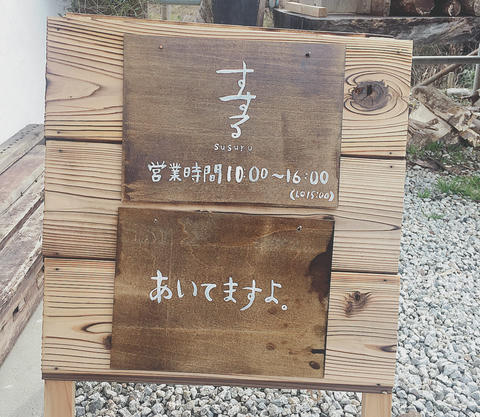 すする
susuru
営業時間10:00～16:00
(LO15:00)
あいてますよ。